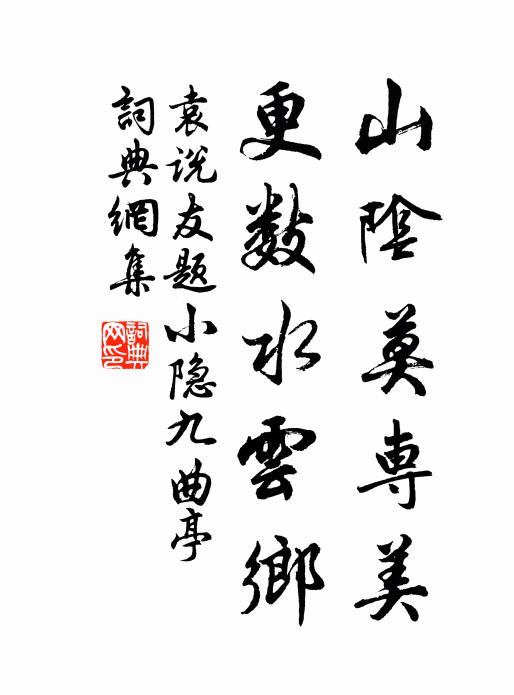 山陰莫専美
更数水雲鄉
袁说友题小隐九曲亭
詞典網集
詞典网印